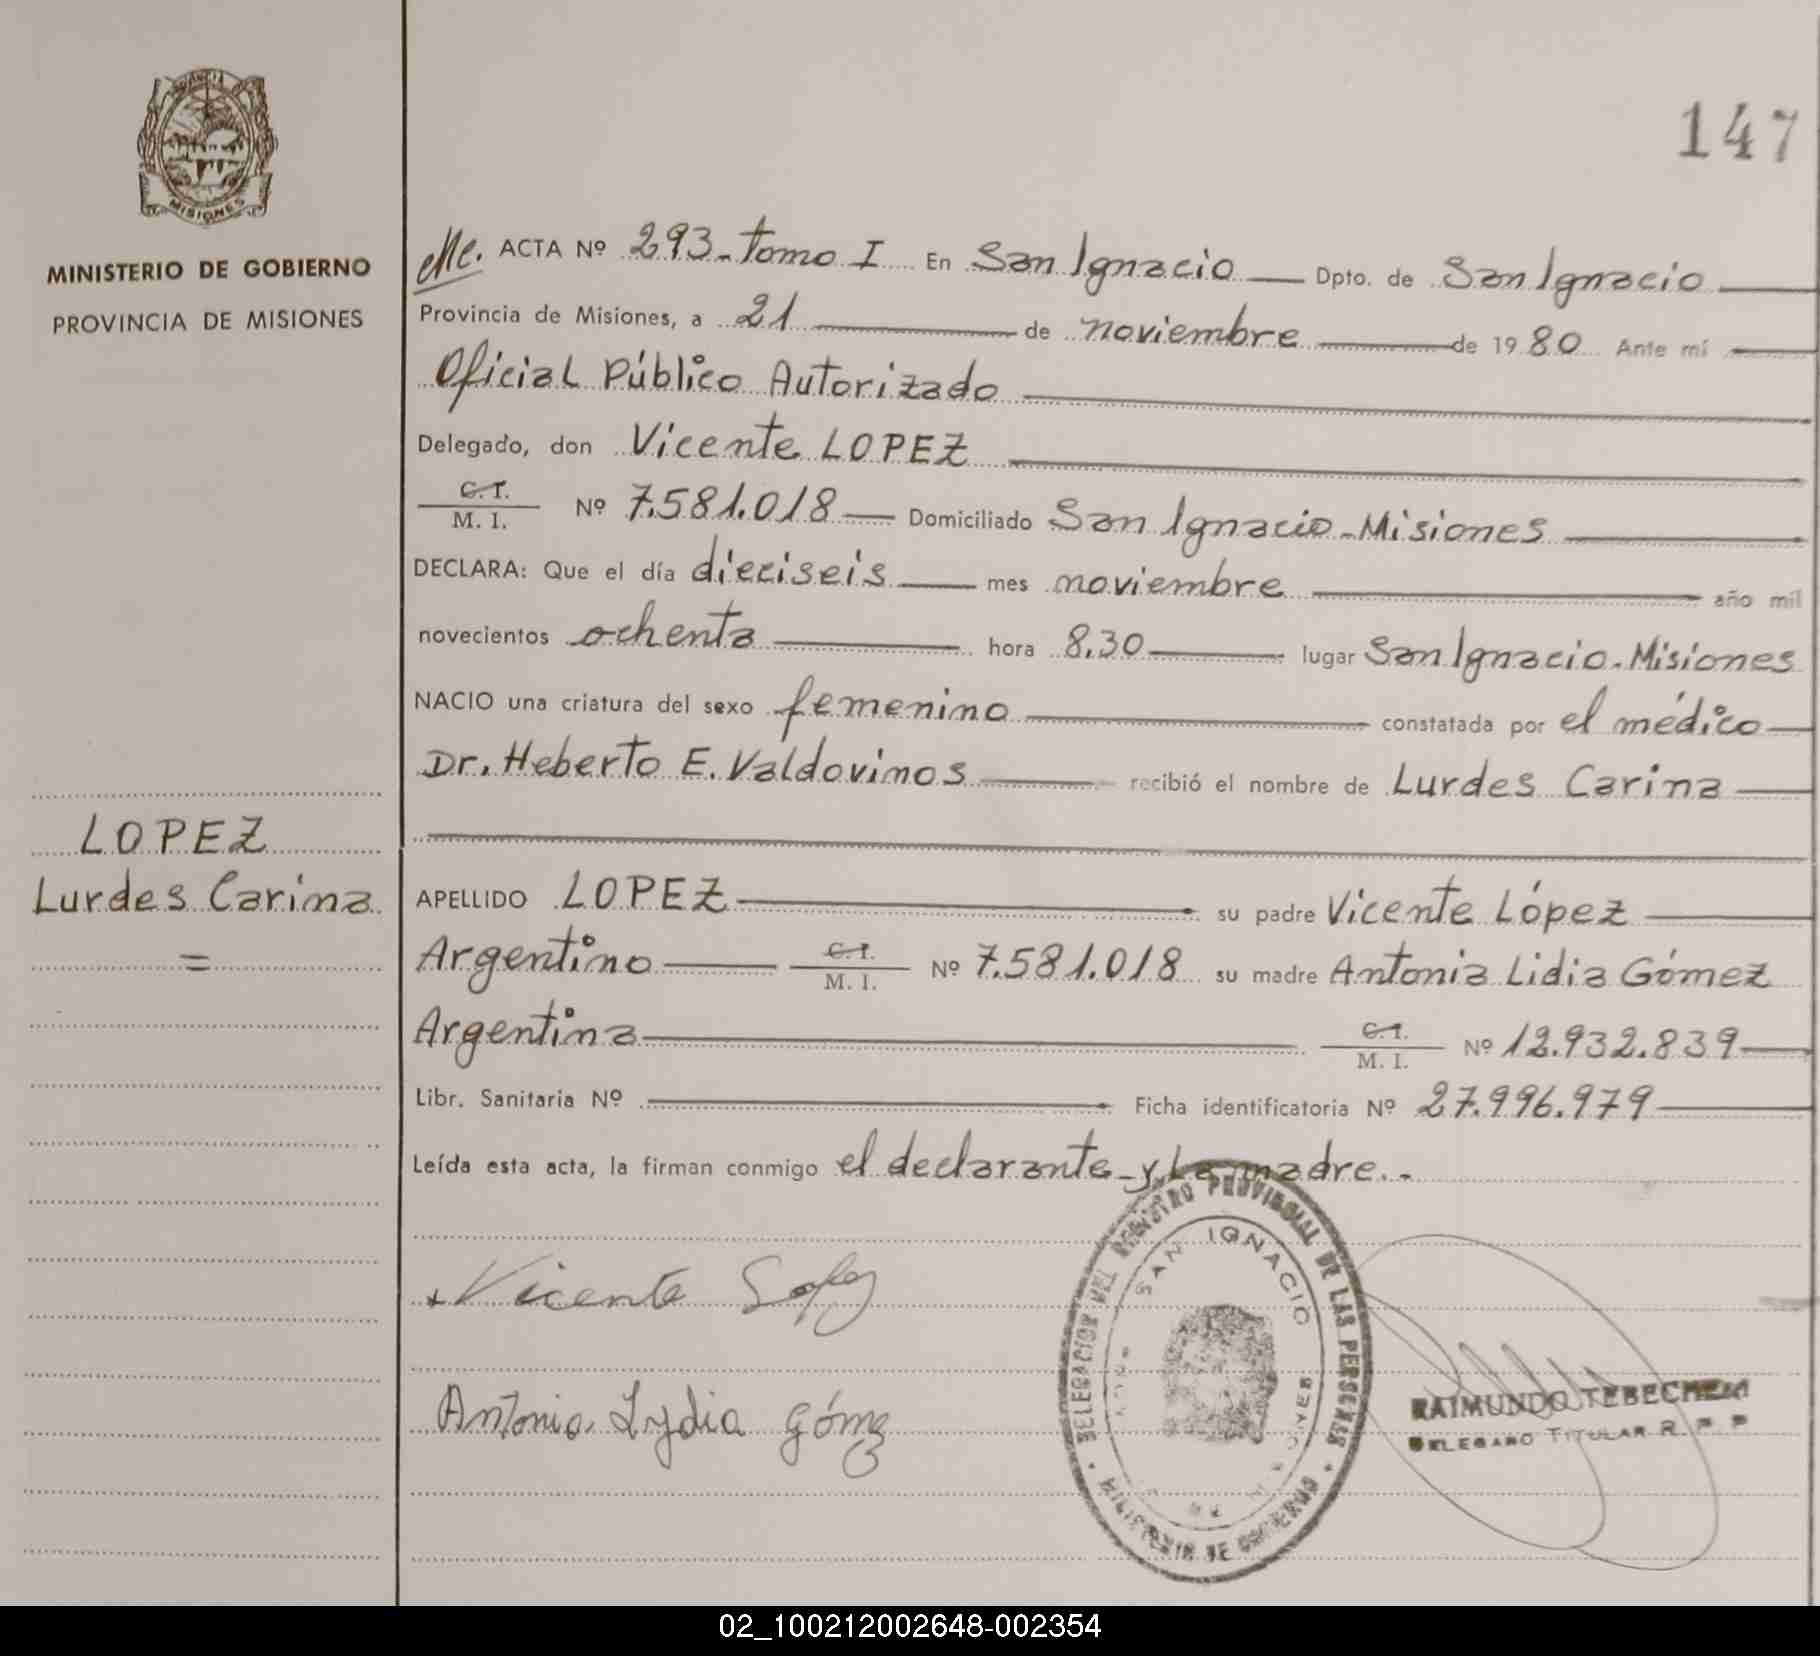 PROVINCIA
MISIONES
MINISTERIO DE GOBIERNO
PROVINCIA DE MISIONES
LOPEZ
Lurdes Carina
=
147
Me. ACTA Nº 293-Tomo I En San Ignacio Dpto. de San Ignacio
Provincia de Misiones, a 21 de noviembre de 1980 Ante mí
Oficial Público Autorizado
Delegado, don Vicente LOPEZ
C. I.
M. I. Nº 7.581.018 Domiciliado San Ignacio-Misiones
DECLARA: Que el día dieciseis mes noviembre año mil
novecientos ochenta hora 8,30 lugar San Ignacio-Misiones
NACIO una criatura del sexo femenino constatada por el médico
Dr. Heberto E. Valdovinos recibió el nombre de Lurdes Carina
APELLIDO LOPEZ su padre Vicente López
Argentino C. I.
M. I. Nº 7.581.018 su madre Antonia Lidia Gómez
Argentina C. I.
M. I. Nº 12.932.839
Libr. Sanitaria Nº Ficha identificatoria Nº 27.996.979
Leída esta acta, la firman conmigo el declarante y La madre.-
Vicente Lopez
Antonia Lydia Gómez
DELEGACION DEL REGISTRO PROVINCIAL DE LAS PERSONAS
SAN IGNACIO
MINISTERIO DE GOBIERNO
MISIONES
RAIMUNDO TEBECHERI
DELEGADO TITULAR R. P. P.
02_100212002648-002354